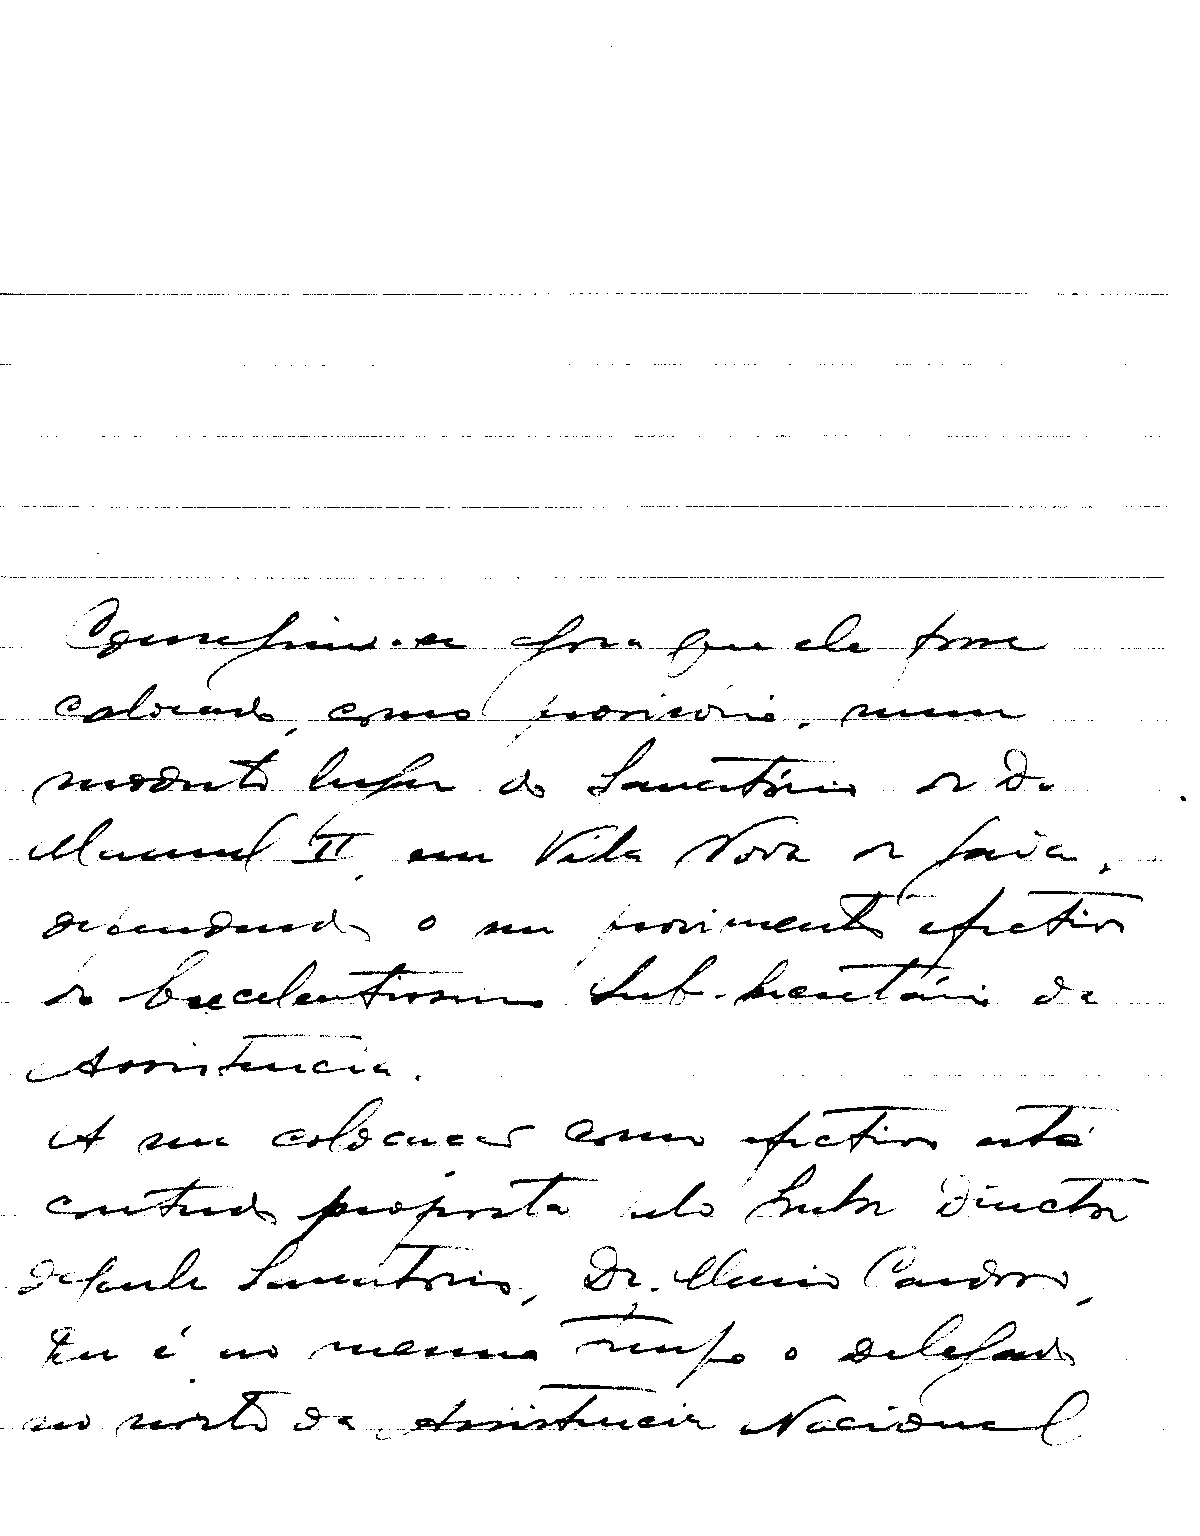 Conseguiu-se agora que ele fosse
colocado, como provisório, num
modesto lugar do Sanatório de D.
Manuel II, em Vila Nova de Gaia,
dependendo o seu provimento efectivo
do Excelentissimo Sub-Secretário da
Assistencia.
A sua colocacao como efectivo está
contudo proposta pelo Senhor Director
daquele Sanatorio, Dr. Mario Cardoso,
que é ao mesmo tempo o delegado
no norte da Assistencia Nacional